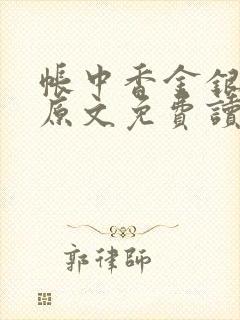 帳中香金銀
原文免費讀
郭律師